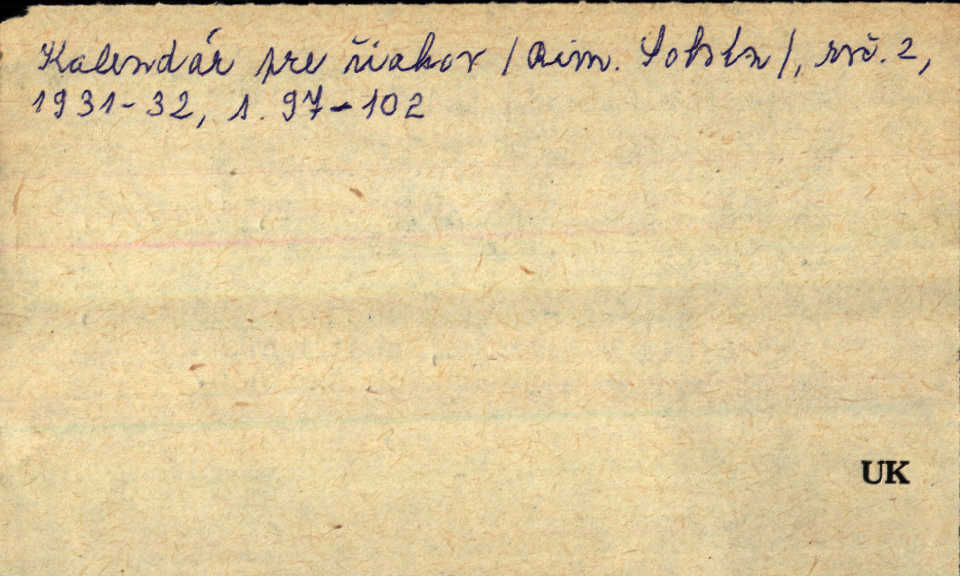 Kalendár pre žiakov /Rim. Sobota/, roč. 2,
1931-32, s. 97-102
UK